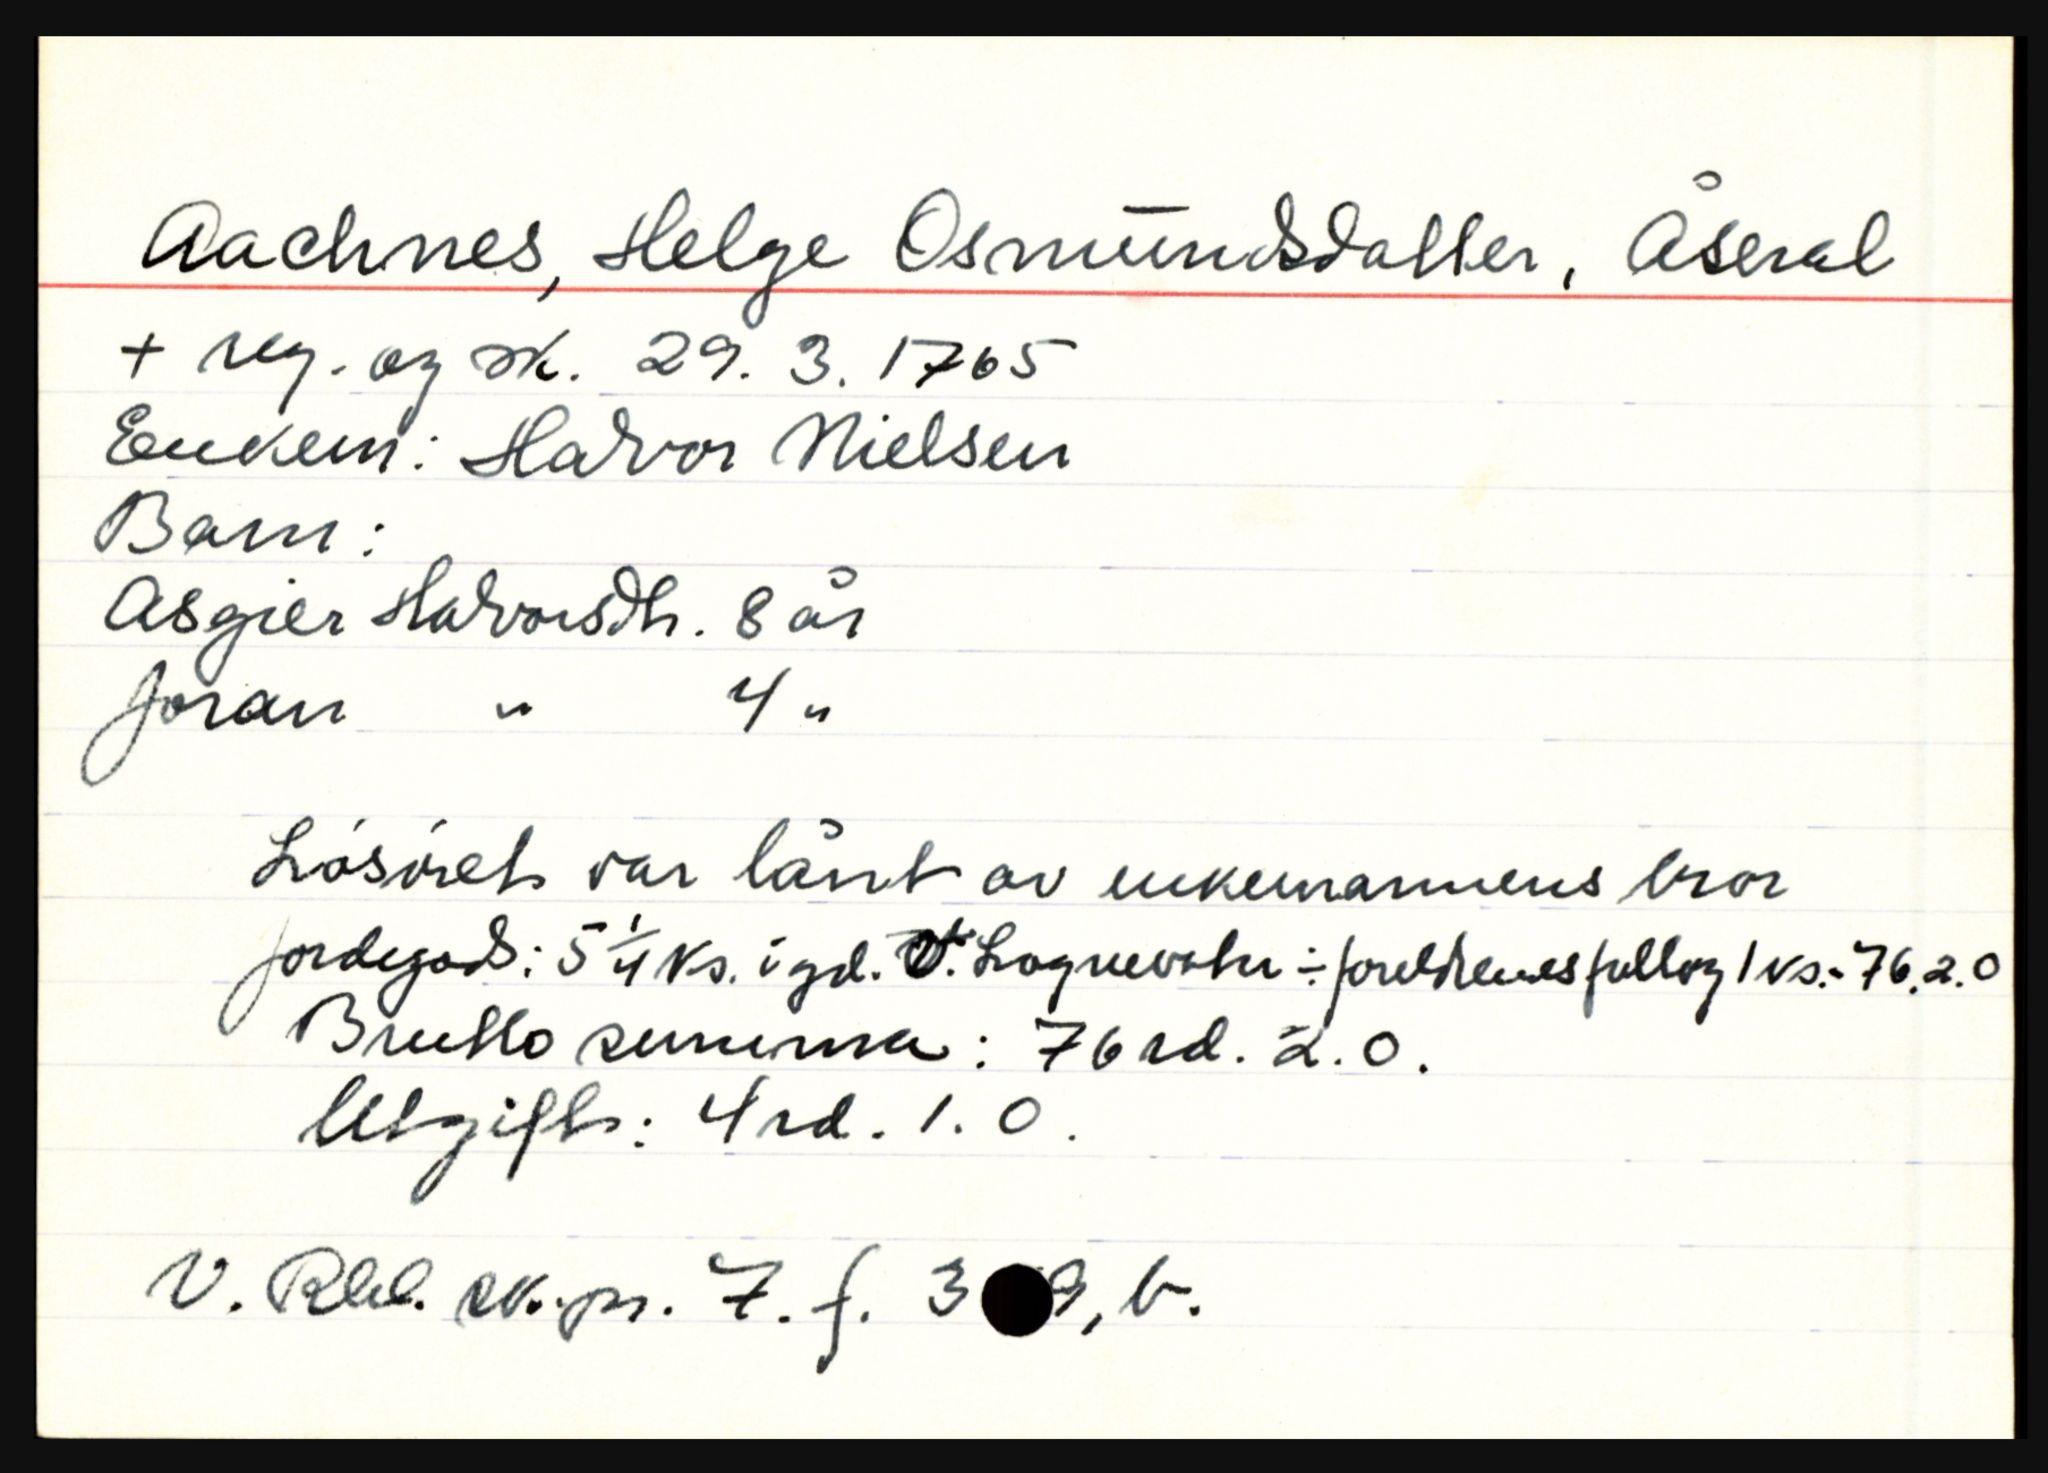 Aachnes, Helge Osmundsdatter, Åseral
+ reg. og sk. 29. 3. 1765
Enkem: Halvor Nielsen
Barn:
Asgier Halvorsdtr. 8 år
Joran " 4 "
Løsøret var lånt av enkemannens bror
jordegods: 5 1/4 ks. i gd. Lognevatn ÷ foreldrenes follog 1 ks. - 76.2.0
Brutto summa: 76 rd. 2.0.
Utgift: 4 rd. 1.0.
V. Rbl. sk.pr. 7. f. 3 9, b.